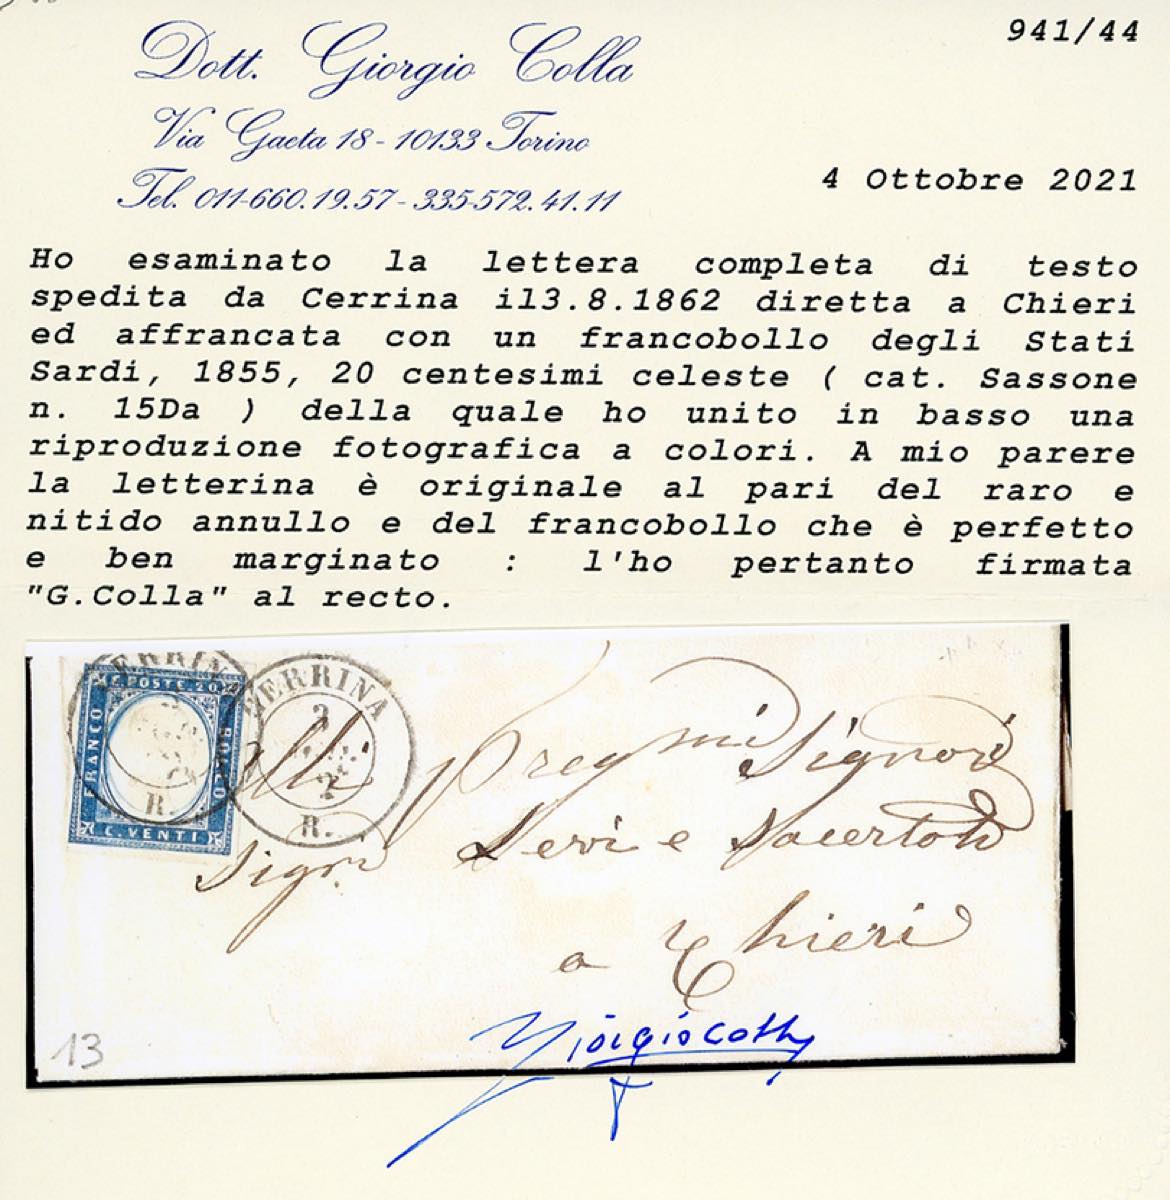 941/44
Dott. Giorgio Colla
Via Gaeta 18 - 10133 Torino
Tel. 011-660.19.57 - 335-572.41.11
4 Ottobre 2021
Ho esaminato la lettera completa di testo
spedita da Cerrina il3.8.1862 diretta a Chieri
ed affrancata con un francobollo degli Stati
Sardi, 1855, 20 centesimi celeste ( cat. Sassone
n. 15Da ) della quale ho unito in basso una
riproduzione fotografica a colori. A mio parere
la letterina è originale al pari del raro e
nitido annullo e del francobollo che è perfetto
e ben marginato : l'ho pertanto firmata
"G.Colla" al recto.
C. POSTE. 20
FRANCO
BOLLO
C. VENTI
R.
CERRINA
3
R.
Alli Pregmi Signori
Sigri Levi e Sacerdoti
a Chieri
13
Giorgio Colla